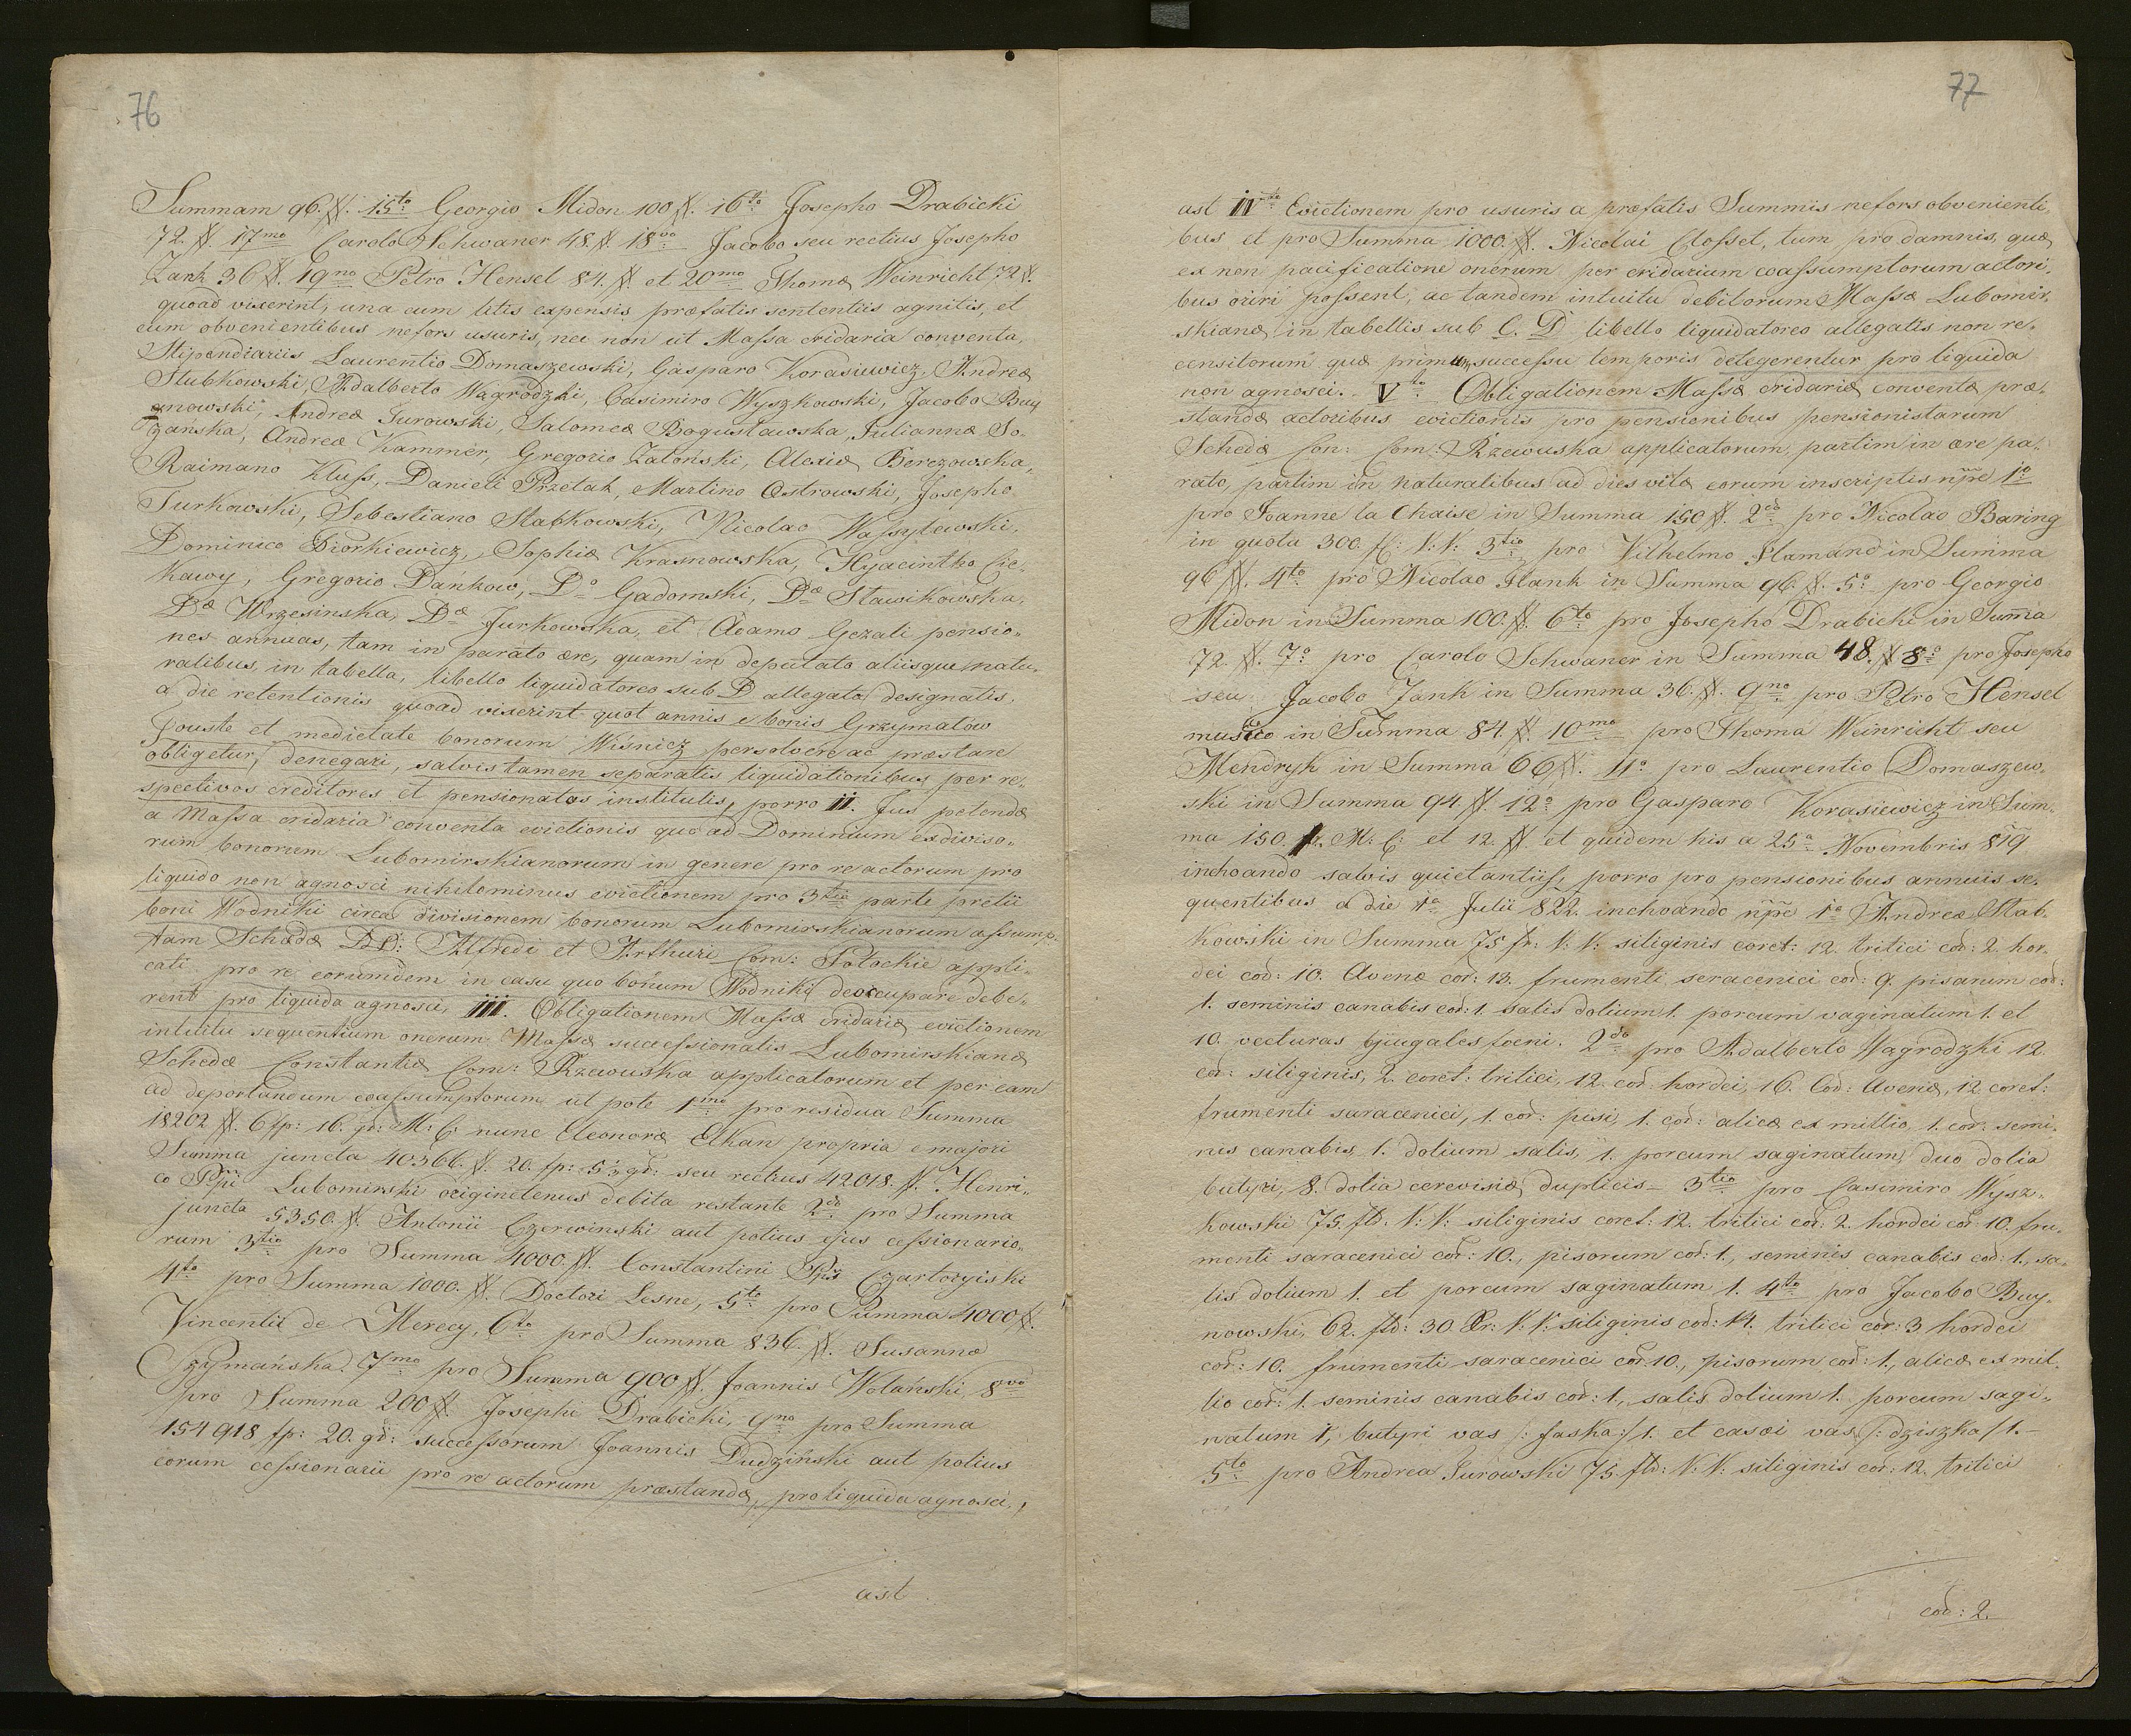 76
Summam 96. #. 15to Georgio Midon 100 #. 16to Josepho Drabicki
72. #. 17mo Carolo Schwaner 48. #. 18vo Jacobo seu rectius Josepho
Zank 36 #. 19no Petro Hensel 84. #. et 20mo Thomæ Weinricht 72 #.
quoad vixerint, una cum litis expensis præfatis sententiis agnitis, et
cum obvenientibus nefors usuris, nec non ut Massa cridaria conventa,
Stipendiariis Laurentio Domaszewski, Gasparo Korasiewicz, Andreæ
Stubkowski, Adalberto Wagrodzki, Casimiro Wyszkowski, Jacobo Buy
gnowski, Andreæ Jurowski, Salomeæ Bogusławska, Juliannæ So„
zańska, Andreæ Kammer, Gregorio Zatoński, Alexiæ Berezowska,
Raimano Kluss, Danieli Przetak, Martino Ostrowski, Josepho
Turkowski, Sebestiano Stabkowski, Nicolao Wassylewski,
Dominico Dziorkiewicz, Sophiæ Krasnowska, Hyacintho Cie„
kawy, Gregorio Dańkow, Do Gadomski, Dæ Stawikowska,
Dæ Wrzesinska, Dæ Jurkowska, et Adamo Gezali pensio„
nes annuas, tam in parato ære, quam in deputato aliisque natu„
ralibus, in tabella, libello liquidatoreo sub D allegata, designatis,
a die retentionis quoad vixerint quot annis e bonis Grzymałów
Touste et medietate bonorum Wiśnicz persolvere ac præstare
obligetur, denegari, salvis tamen separatis liquidationibus per re„
spectivos creditores et pensionatos institutis, porro II. Jus petendæ
a Massa cridaria conventa evictionis quo ad Dominium exdiviso„
rum bonorum Lubomirskianorum in genere pro re actorum pro
liquido non agnosci nihilominus evictionem pro 3tia parte pretii
boni Wodniki circa divisionem bonorum Lubomirskianorum assump„
tam Schedæ DD: Alfredi et Arthuri Com: Potockie appli„
cati pro re eorumdem in casu quo bonum Wodniki deoccupare debe„
rent pro liquida agnosci, III. Obligationem Massæ cridariæ evictionem
intuitu sequentium onerum Massæ successionalis Lubomirskianæ
Schedæ Constantiæ Com: Rzewuska applicatorum et per eam
ad deportandum coassumptorum ut pote 1mo pro residua Summa
18202 #. 6 fp: 16. gr: M: C: nunc Eleonoræ Elkan propria e majori
Summa juncta 40366. #. 20. fp: 5½ gr: seu rectius 42018. #. Henri„
co Ppi Lubomirski originetenus debita restante 2do pro Summa
juncta 5350. #. Antonii Czerwinski aut potius ejus cessionario„
rum 3tio pro Summa 4000. #. Constantini Ppis Czartoryiski
4to pro Summa 1000. #. Doctori Lesne, 5to pro Summa 4000 #.
Vincentii de Merecy, 6to pro Summa 836. #. Susannæ
Szymańska. 7mo pro Summa 900 #. Joannis Wolański, 8vo
pro Summa 200 #. Josephi Drabicki, 9no pro Summa
154918 fp: 20. gr: successorum Joannis Dudziński aut potius
eorum cessionarii pro re actorum præstandæ, pro liquida agnosci,
ast
77
ast IVto Evictionem pro usuris a præfatis Summis nefors obvenienti„
bus et pro Summa 1000. #. Nicolai Closset, tum pro damnis, quæ
ex non pacificatione onerum per cridarium coassumptorum actori„
bus oriri possent, ac tandem intuitu debitorum Massæ Lubomir„
skianæ in tabellis sub C. D libello liquidatoreo allegatis non re„
censitorum quæ primum successu temporis detegerentur pro liquida
non agnosci. Vto Obligationem Massæ cridariæ conventæ præ„
standæ actoribus evictionis pro pensionibus pensionistarum
Schedæ Con: Com: Rzewuska applicatorum, partim in ære pa„
rato, partim in naturalibus ad dies vitæ eorum inscriptis npe 1o
pro Joanne la Chaise in Summa 150 #. 2do pro Nicolao Baring
in quota 300. f: V: V: 3tio pro Vilhelmo Flamand in Summa
96 #. 4to pro Nicolao Flank in Summa 96. #. 5o pro Georgio
Midon in Summa 100. #. 6to pro Josepho Drabicki in Summa
72. #. 7o pro Carolo Schwaner in Summa 48. # 8o pro Josepho
seu Jacobo Zank in Summa 36. #. 9no pro Petro Hensel
musico in Summa 84. #. 10mo pro Thoma Weinricht seu
Mendryk in Summa 66 #. 11o pro Laurentio Domaszew„
ski in Summa 94. #. 12o pro Gasparo Korasiewicz in Sum„
ma 150. f. M: C: et 12. #. et quidem his a 25a Novembris 819
inchoando salvis quietantiis, porro pro pensionibus annuis se„
quentibus a die 1a Julii 822. inchoando npe 1o Andreæ Stab„
kowski in Summa 75 fr: V: V: siliginis coret: 12. tritici cor: 2. hor„
dei cor: 10. Avenæ cor: 13. frumenti seracenici cor: 9. pisarum cor:
1. seminis canabis cor: 1. salis dolium 1. porcum vaginatum 1. et
10. vecturas bjiugales foeni. 2do pro Adalberto Wagrodzki 12.
cor: siliginis, 2. coret: tritici, 12. cor: hordei, 16. Cor: Avenæ, 12 coret:
frumenti saracenici, 1. cor: pisi, 1. cor: alicæ ex millio, 1. cor: semi„
nis canabis, 1. dolium salis, 1. porcum saginatum, duo dolia
butyri, 8. dolia cerevisiæ duplicis – 3tio pro Casimiro Wysz„
kowski 75. fld: V: V: siliginis coret: 12. tritici cor: 2. hordei cor: 10. fru„
menti saracenici cor: 10., pisorum cor: 1., seminis canabis cor: 1., sa„
lis dolium 1. et porcum saginatum 1. 4to pro Jacobo Buy„
nowski, 62. fld: 30. Xr: V: V: siliginis cor: 14. tritici cor: 3 hordei
cor: 10. frumenti saracenici cor: 10., pisorum cor: 1., alicæ ex mil„
lio cor: 1. seminis canabis cor: 1., salis dolium 1. porcum sagi„
natum 1, butyri vas /: faska :/ 1. et casei vas /: dziszka / 1. –
5to pro Andrea Jurowski 75. fld: V: V: siliginis cor: 12. tritici
cor: 2.